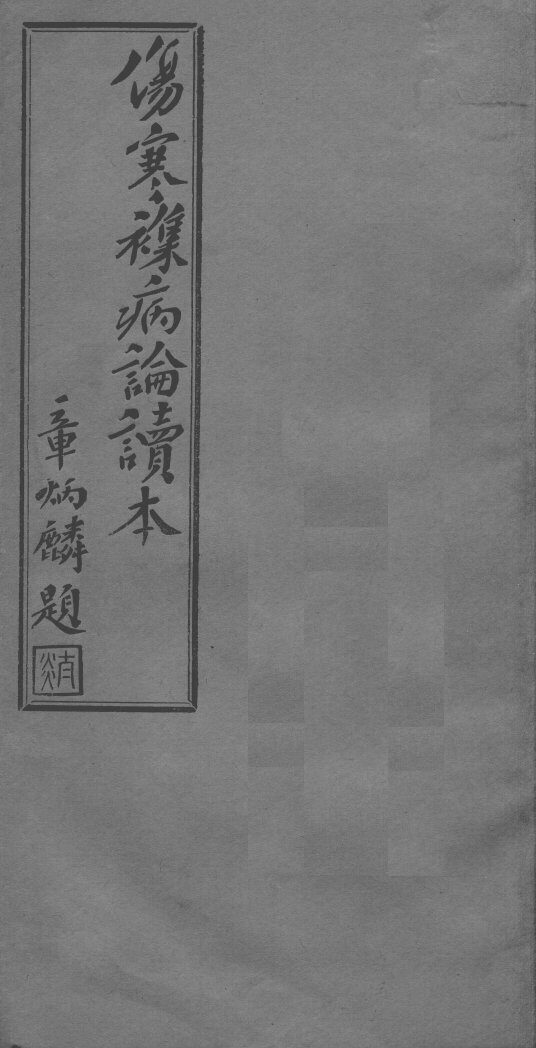 傷寒襍病論讀本
章炳麟題